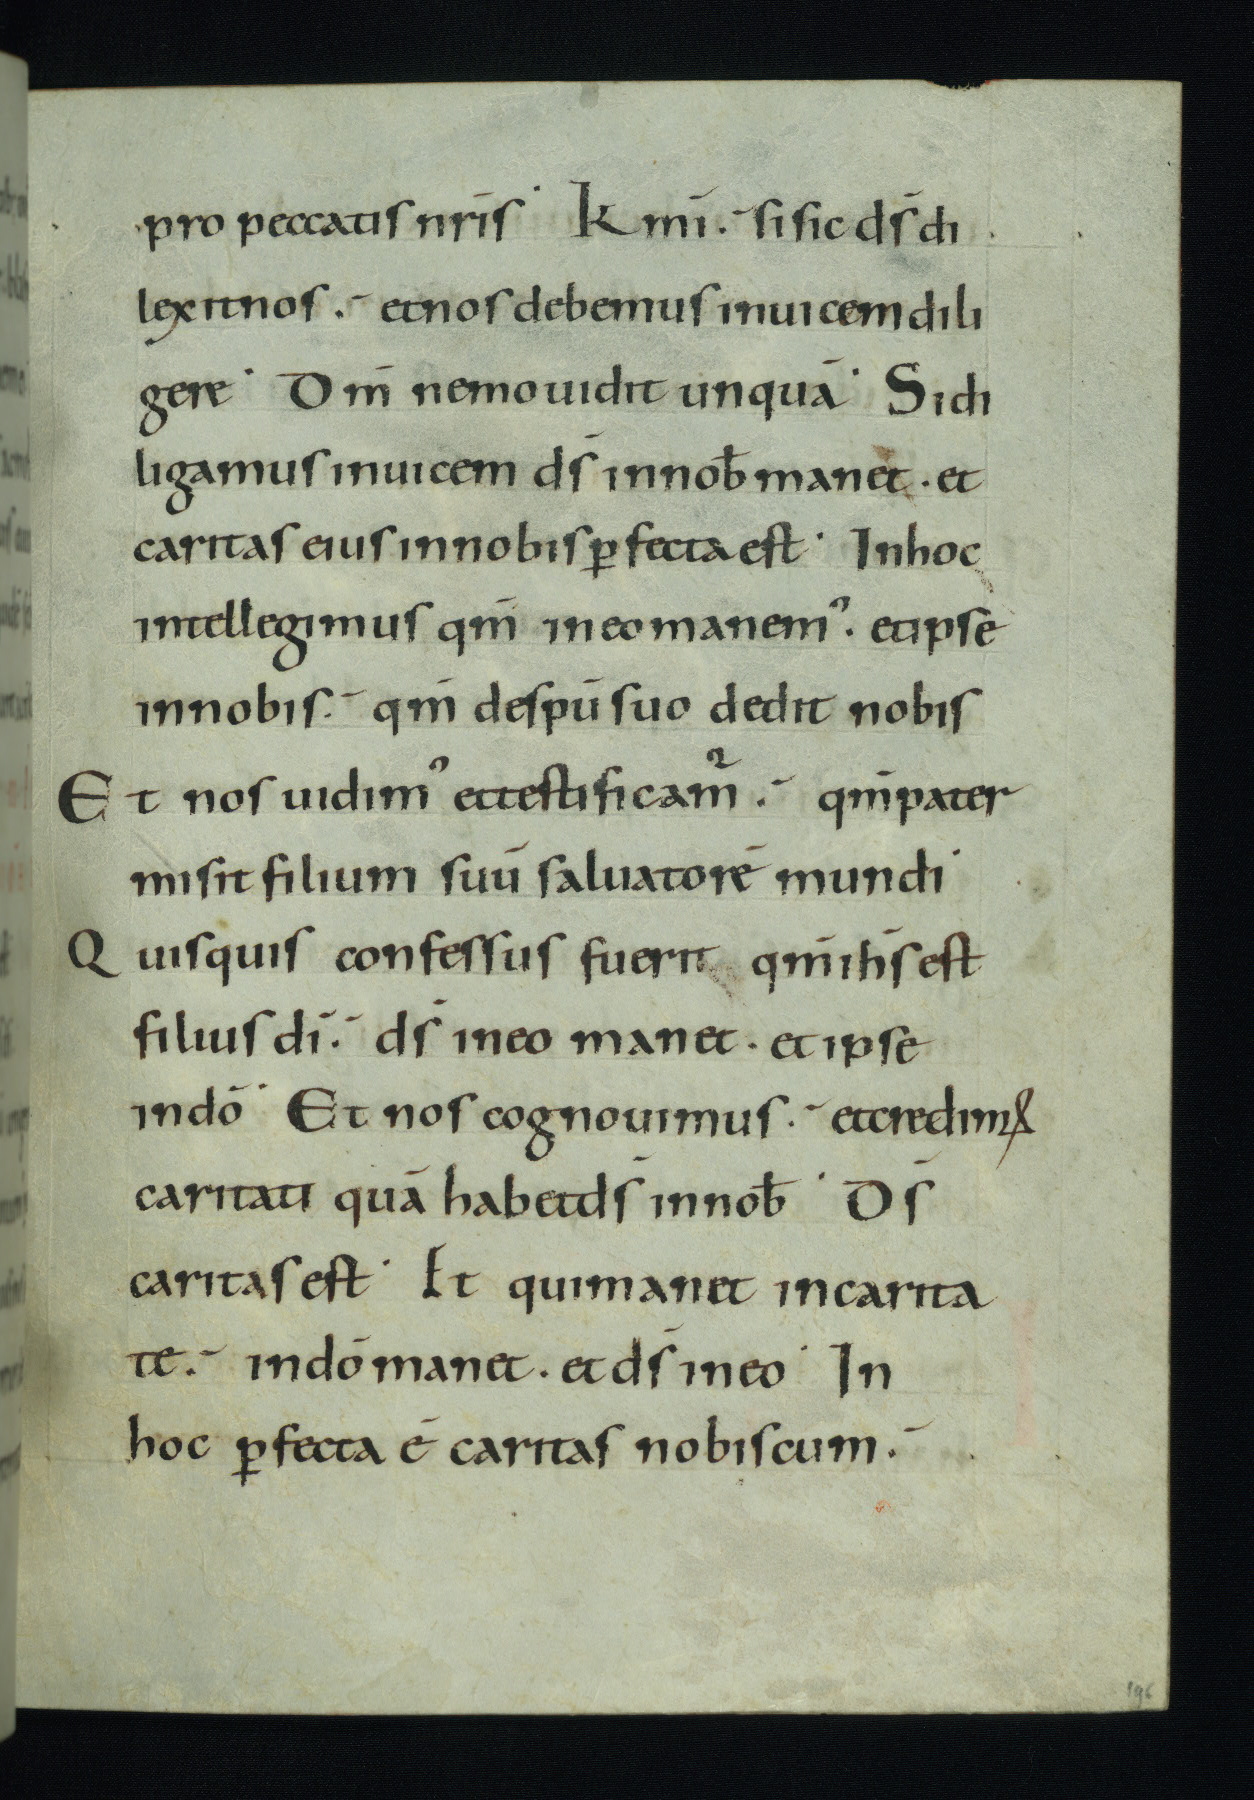 pro peccatis nr̄is· Kmī. si sic ds̄ di
lexit nos. et nos debemus inuicem dili
gere· Dm̄ nemo uidit unquā· Si di
ligamus inuicem ds̄ in nob̄ manet. et
caritas eius in nobis ꝑfecta est· In hoc
intellegimus qm̄ in eo manemꝰ. et ipse
in nobis. qm̄ de spū suo dedit nobis
Et nos uidimꝰ et testificamᷣ. qm̄ pater
misit filium suū saluatorē mundi·
Quisquis confessus fuerit qm̄ ih̄s est
filius dī. ds̄ in eo manet. et ipse
in dō· Et nos cognouimus. et credimꝰ
caritati quā habet ds̄ in nob̄· Ds̄
caritas est· Et qui manet in carita
te. in dō manet. et ds̄ in eo· In
hoc ꝑfecta ē caritas nobiscum.
196